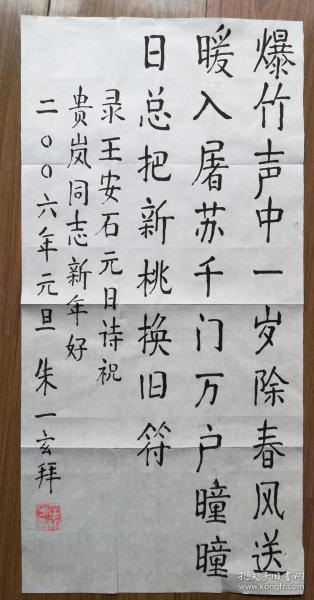 爆竹声中一岁除春风送
暖入屠苏千门万户曈曈
日总把新桃换旧符
录王安石元日诗祝
贵岚同志新年好
二〇〇六年元旦朱一玄拜
孔夫子旧书网